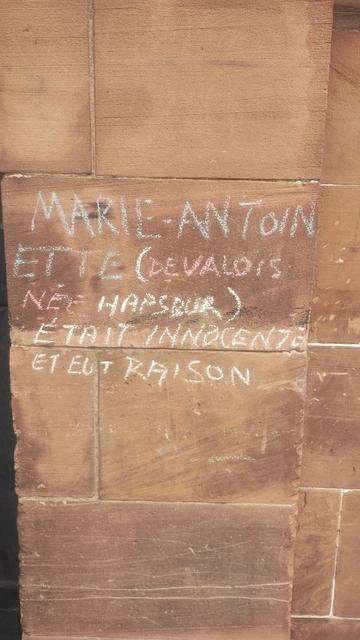 MARIE-ANTOIN
ETTE (DEVALOIS
NÉE HAPSBUR)
ÉTAIT INNOCENTE
ET EUT RAISON